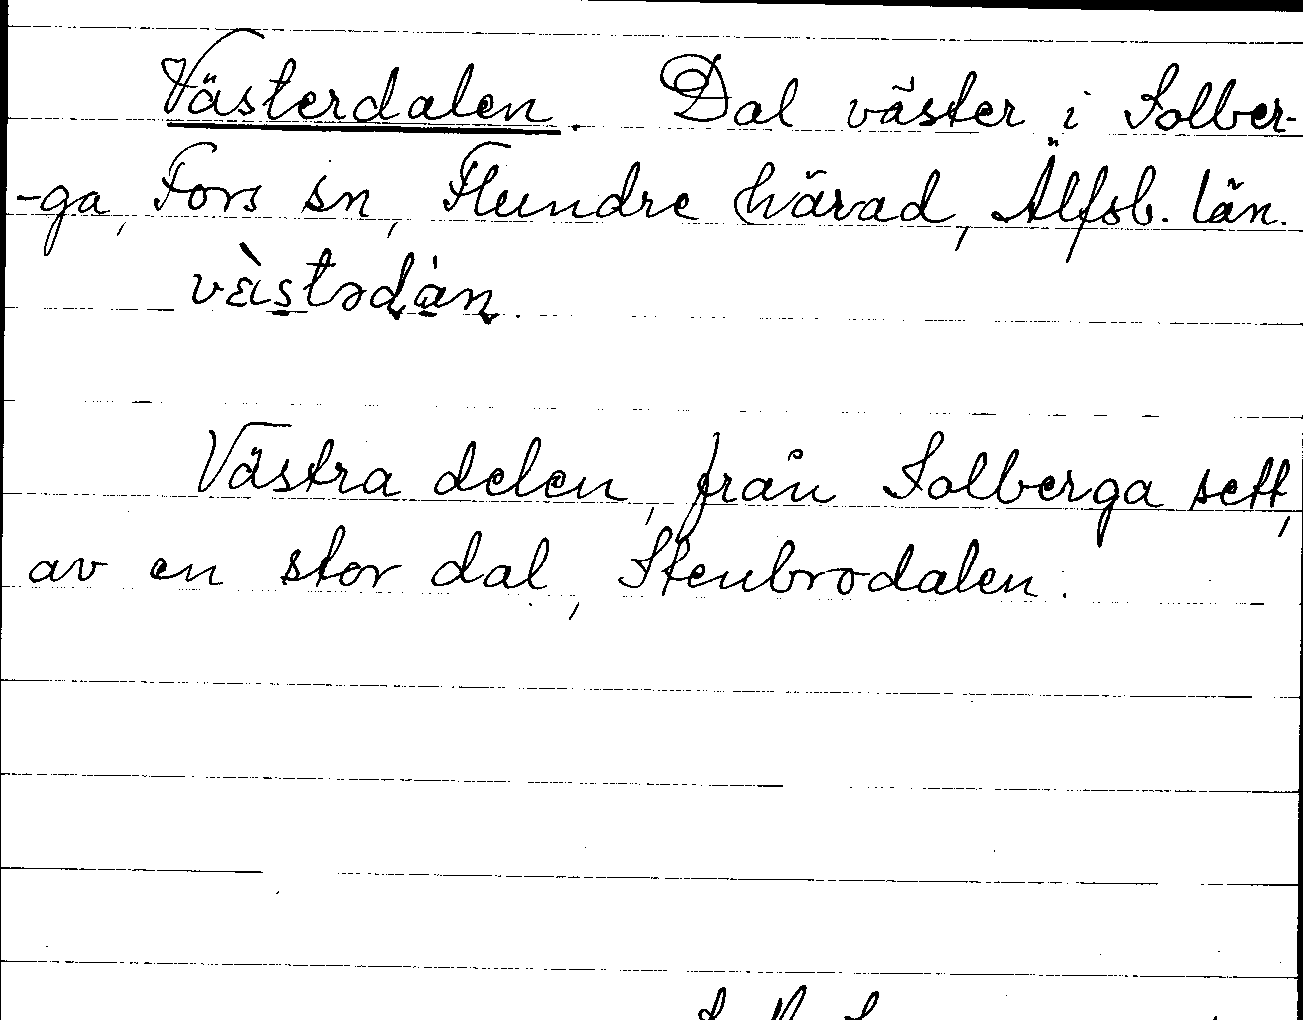 Västerdalen. Dal väster i Solber-
-ga, Fors sn, Flundre härad, Älfsb. län.
vὲstədàn.
Västra delen, från Solberga sett,
av en stor dal, Stenbrodalen.